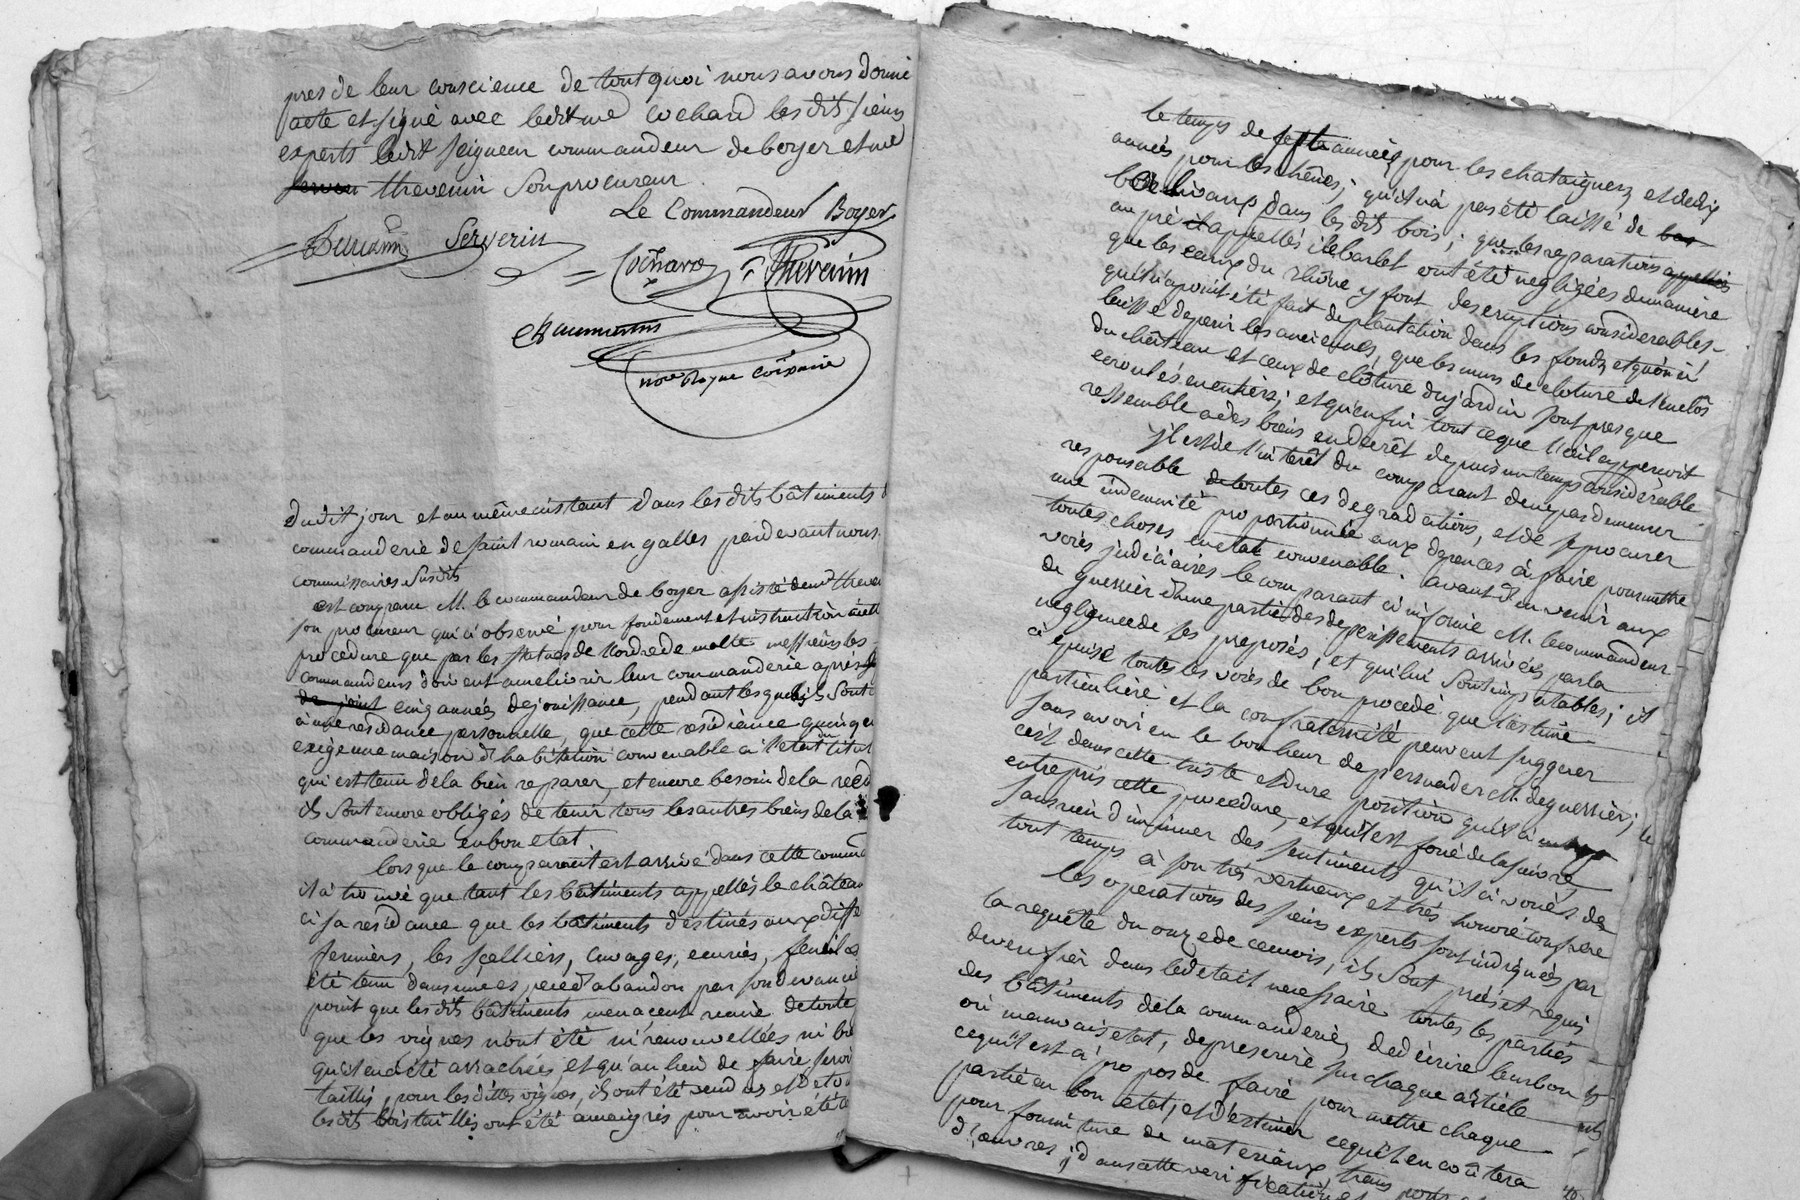 pres de leur conscience de tout quoi nous avons donné
acte et signé avec ledit me cochard les dits sieurs
experts ledit seigneur commandeur de boyer et me
thevenin son procureur
Le Commandeur Boyer
Serverin
Cochard Thevenin
chaumartin
nore Royal Coiremire
Dudit jour et au même instant dans les dits bâtiments
commanderie de saint romain en galles pardevant nous
commissaires susdits
est comparu M. le commandeur de boyer assisté de me theve
son procureur qui a observé pour fondement et instruction
procedure que par les statuts de l'ordre de malte messieurs les
commandeurs doivent ameliorir leur commanderie après
de cinq années de jouissance, pendant lesquels ils sont
à une residance personnelle, que cette residence qu
exige une maison d'habitation convenable à l'etat du titul
qui est tenu de la bien reparer, et encore besoin de la
ils sont encore obligés de tenir tous les autres biens de la
commanderie en bon etat.
lorsque le comparant est arrivé dans cette comm
il a trouvé que tant les bâtiments appellés le château
a sa residance que les bâtiments destinés aux diffe
fermiers, les scelliers, cuvages, ecuries, fenil
été tenu dans une espece d'abandon par son devancie
point que les dits bâtiments menacent ruine de toute
que les vignes n'ont été ni renouvellées ni
qu'il en a été arrachées et qu'au lieu de faire servir
taillis, pour les dittes vignes, ils ont été vendus et
les dits bois taillis ont été amaigris pour avoir été
le temps de sept années pour les chataigners et de dix
années pour les chênes; qu'il n'a pas été laissé de
baliveaux dans les dits bois; que les reparations
au pré appellés ile barlet ont été negligées de maniere
que les eaux du rhône y font des eruptions considerables
qu'il n'a point été fait de plantation dans les fonds et qu'on a
laissé deperir les anciennes, que les murs de cloture de l'enclos
du château et ceux de cloture du jardin sont presque
ecroulés en entiers; et qu'enfin tout ce que l'oeil apperçoit
ressemble a des biens en decrêt depuis un temps considerable
il est de l'interêt du comparant de ne pas demeurer
responsable de toutes ces degradations, et de se procurer
une indemnité proportionnée aux depences à faire pour mettre
toutes choses en etat convenable. avant d'en venir aux
voies judiciaires le comparant a informé M. le commandeur
de guerrier d'une partie des deperissements arrivés par la
negligence de ses preposés, et qui lui sont imputables; il
a epuisé toutes les voies de bon procedé que l'estime
particulière et la confraternité peuvent suggerer
sans avoir eu le bonheur de persuader M. de guerrier;
c'est dans cette triste et dure position qu'il a
entrepris cette procedure, et qu'il est forcé de la suivre
sans rien diminuer des sentiments qu'il a voués de
tout temps à son très vertueux et très honoré confrere
les operations des sieurs experts sont indiqués par
la requête du onze de ce mois, ils sont priés et requis
de verifier dans le detail necessaire toutes les parties
des bâtiments de la commanderie, de decrire leur bon
ou mauvais etat, de prescrire sur chaque article
ce qu'il est à propos de faire pour mettre chaque
partie en bon etat, et d'estimer ce qu'il en coûtera
pour fourniture de materiaux, trans
d'oeuvres; dans cette verification